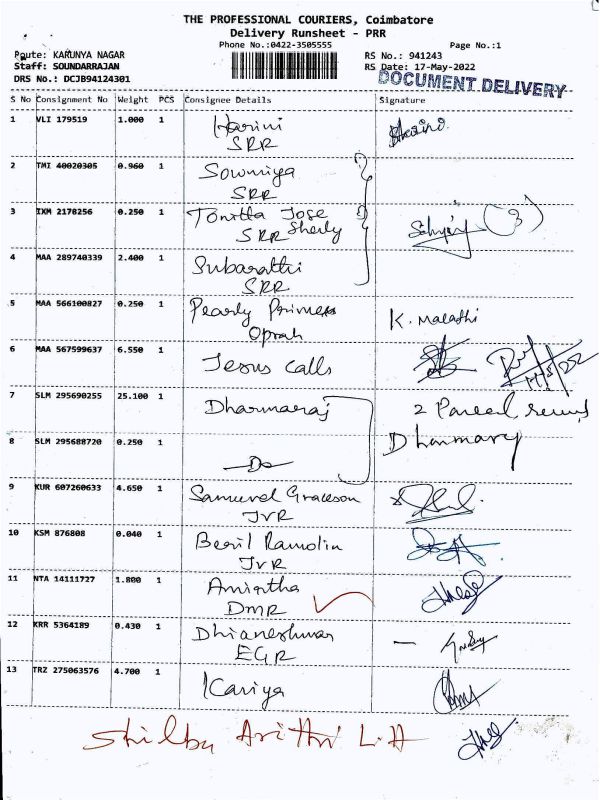 THE PROFESSIONAL COURIERS, Coimbatore
Delivery Runsheet - PRR
Phone No.:0422-3505555
Page No.:1
Route: KARUNYA NAGAR
RS No.: 941243
Staff: SOUNDARRAJAN
RS Date: 17-May-2022
DRS No.: DCJB94124301
DOCUMENT DELIVERY
S No Consignment No Weight PCS Consignee Details Signature
1 VLI 179519 1.000 1 Harini
SRR
2 TMI 40020305 0.960 1 Sowmiya
SRR
3 IXM 2178256 0.250 1 Tonitta Jose (3)
SRR Sherly
4 MAA 289740339 2.400 1 Subarathi
SRR
5 MAA 566100827 0.250 1 Pearly K. Malathi
Oprah
6 MAA 567599637 6.550 1 Jesus calls
7 SLM 295690255 25.100 1 Dharmaraj 2 Parcel
8 SLM 295688720 0.250 1 Do
9 KUR 607260633 4.650 1 Samuvel
JVR
10 KSM 876808 0.040 1 Beril Ramolin
JVR
11 NTA 14111727 1.800 1
DMR
12 KRR 5364189 0.430 1 Dhianeshwar
EGR
13 TRZ 275063576 4.700 1 Kaviya